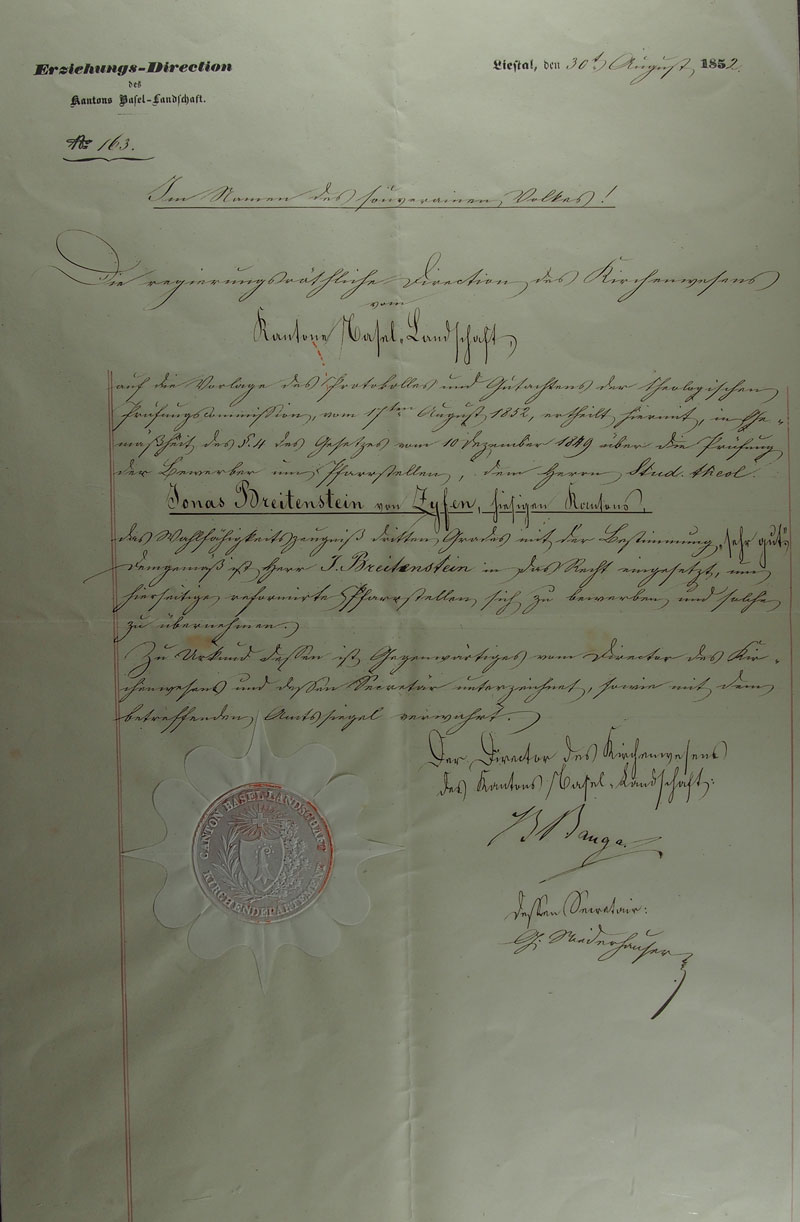 Erziehungs-Direction
des
Kantons Basel-Landschaft.
Liestal, den 30t. August 1852.
No 163.
Im Namen des souverainen Volkes!
Die regierungsräthliche Direction des Kirchenwesens
vom
Kantone Basel-Landschaft,
auf die Vorlage des Protokolles und Gutachtens der theologischen
Prüfungscommission, vom 17ten August 1852, ertheilt hiermit, in Ge-
mäßheit des §. 4 des Gesetzes vom 10 Dezember 1849 über die Prüfung
der Bewerber um Pfarrstellen, dem Herrn Stud. theol.
Jonas Breitenstein von Zyfen, hiesigen Kantons,
das Wahlfähigkeitszeugniß dritten Grades mit der Bestimmung „sehr gut“
Demgemäß ist Herr J. Breitenstein in das Recht eingesetzt, um
hierseitige reformirte Pfarrstellen sich zu bewerben und solche
zu übernehmen.
Zu Urkund dessen ist Gegenwärtiges vom Director des Kir-
chenwesens und dessen Secretär unterzeichnet, sowie mit dem
betreffenden Amtssiegel verwahrt.
Der Director des Kirchenwesens
des Kantons Basel-Landschaft:
B Banga
dessen Secretair:
G. Niederhauser
CANTON BASEL LANDSCHAFT
KIRCHENDEPARTEMENT